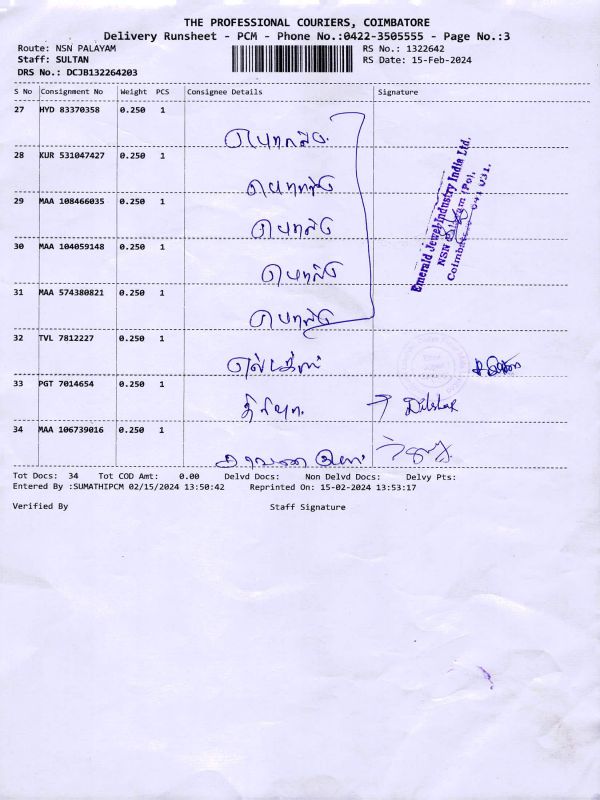 THE PROFESSIONAL COURIERS, COIMBATORE
Delivery Runsheet - PCM - Phone No.:0422-3505555 - Page No.:3
Route: NSN PALAYAM
RS No.: 1322642
Staff: SULTAN
RS Date: 15-Feb-2024
DRS No.: DCJB132264203
S No Consignment No Weight PCS Consignee Details Signature
27 HYD 83370358 0.250 1
28 KUR 531047427 0.250 1
29 MAA 108466035 0.250 1
30 MAA 104059148 0.250 1
31 MAA 574380821 0.250 1
Emerald Jewel Industry India Ltd.
32 TVL 7812227 0.250 1
33 PGT 7014654 0.250 1
Dilshar
34 MAA 106739016 0.250 1
Tot Docs: 34 Tot COD Amt: 0.00 Delvd Docs: Non Delvd Docs: Delvy Pts:
Entered By :SUMATHIPCM 02/15/2024 13:50:42 Reprinted On: 15-02-2024 13:53:17
Verified By Staff Signature